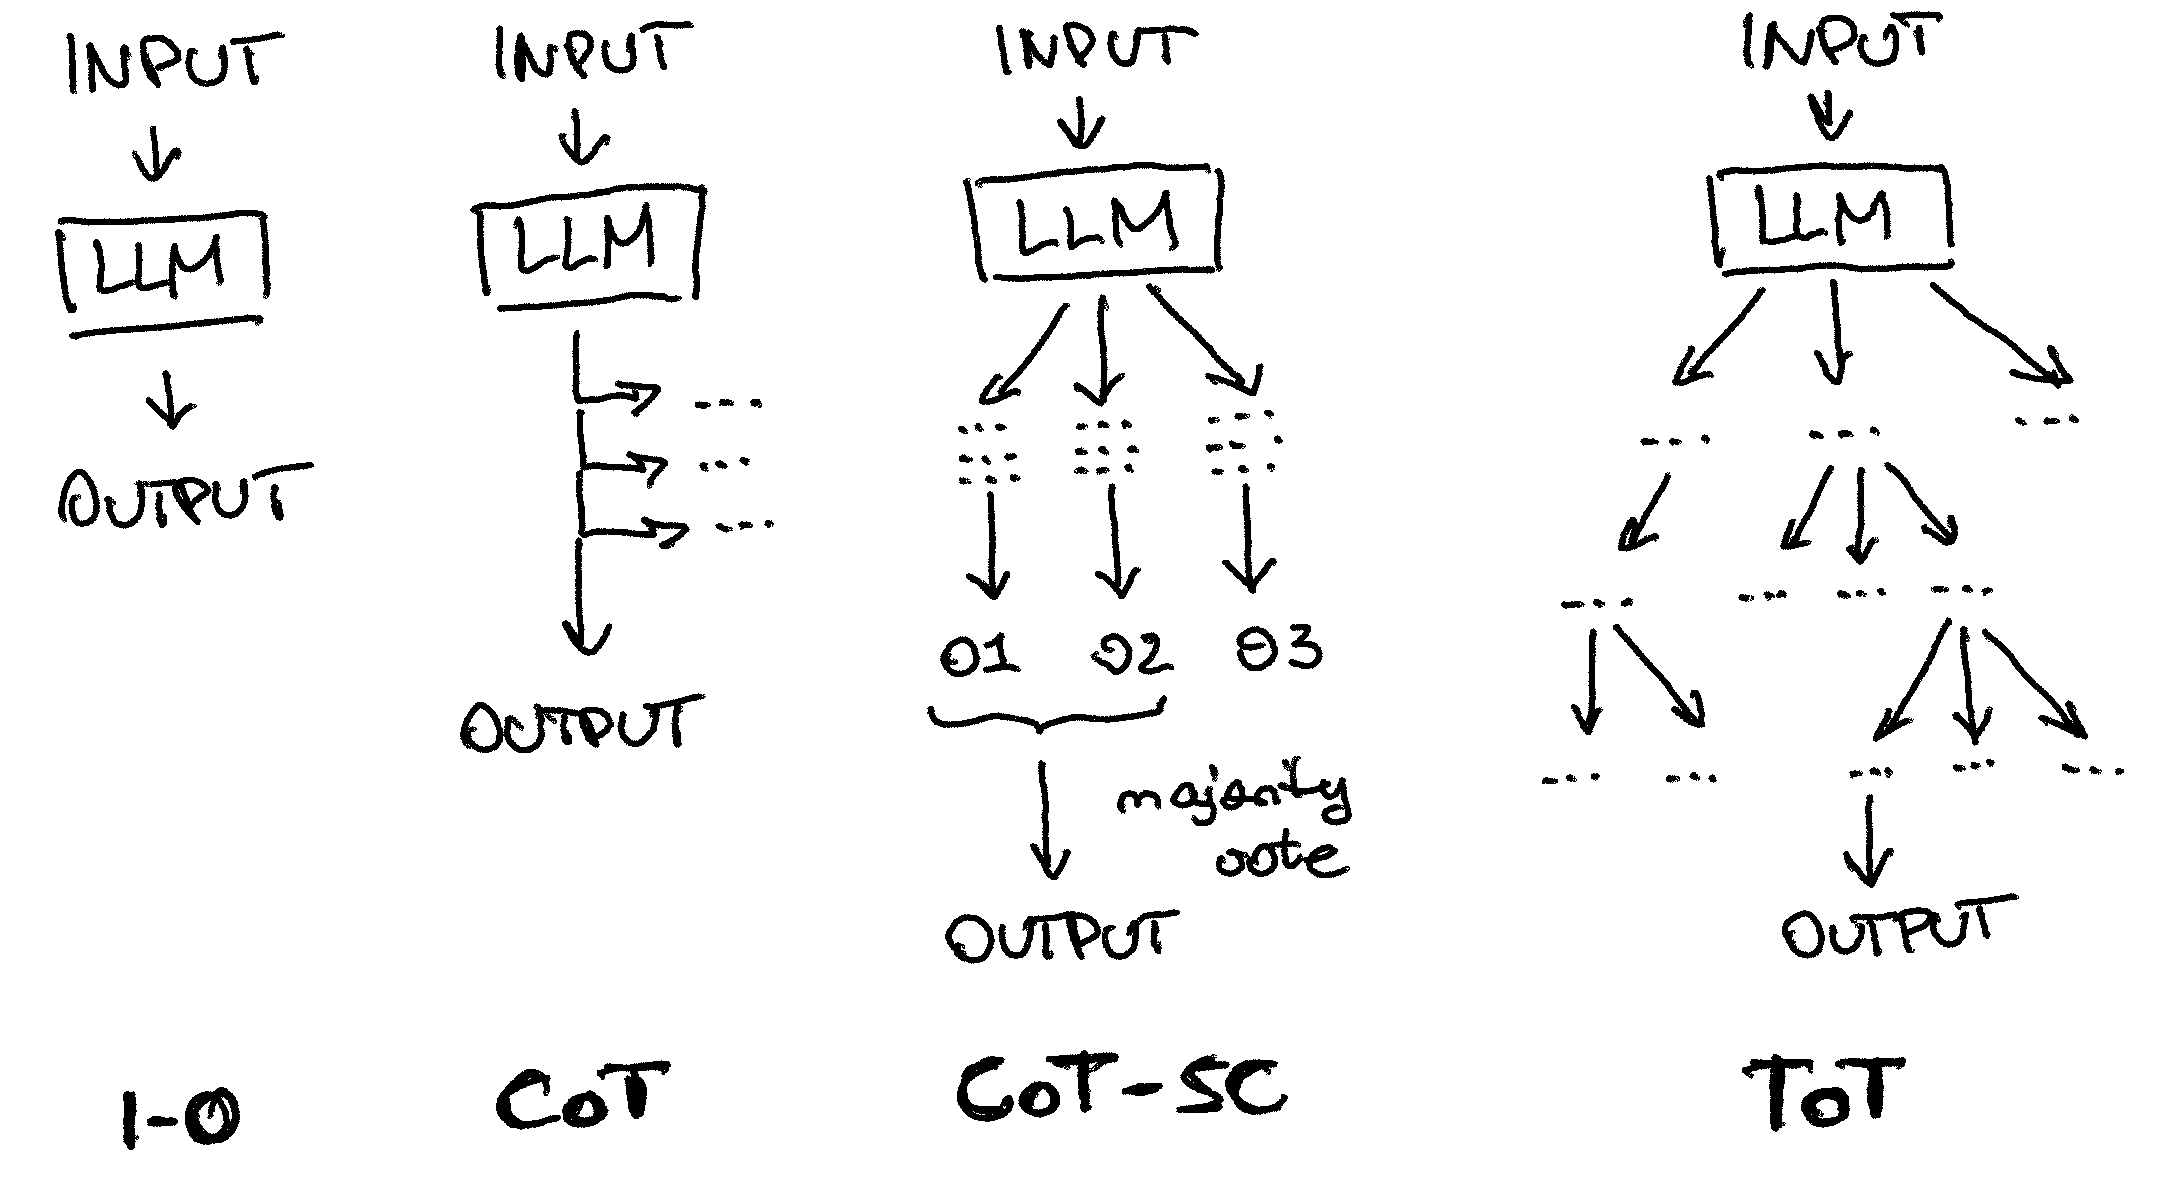 INPUT
LLM
OUTPUT
I-O
INPUT
LLM
---
---
---
OUTPUT
CoT
INPUT
LLM
O1 O2 O3
majority
vote
OUTPUT
CoT-SC
INPUT
LLM
OUTPUT
ToT